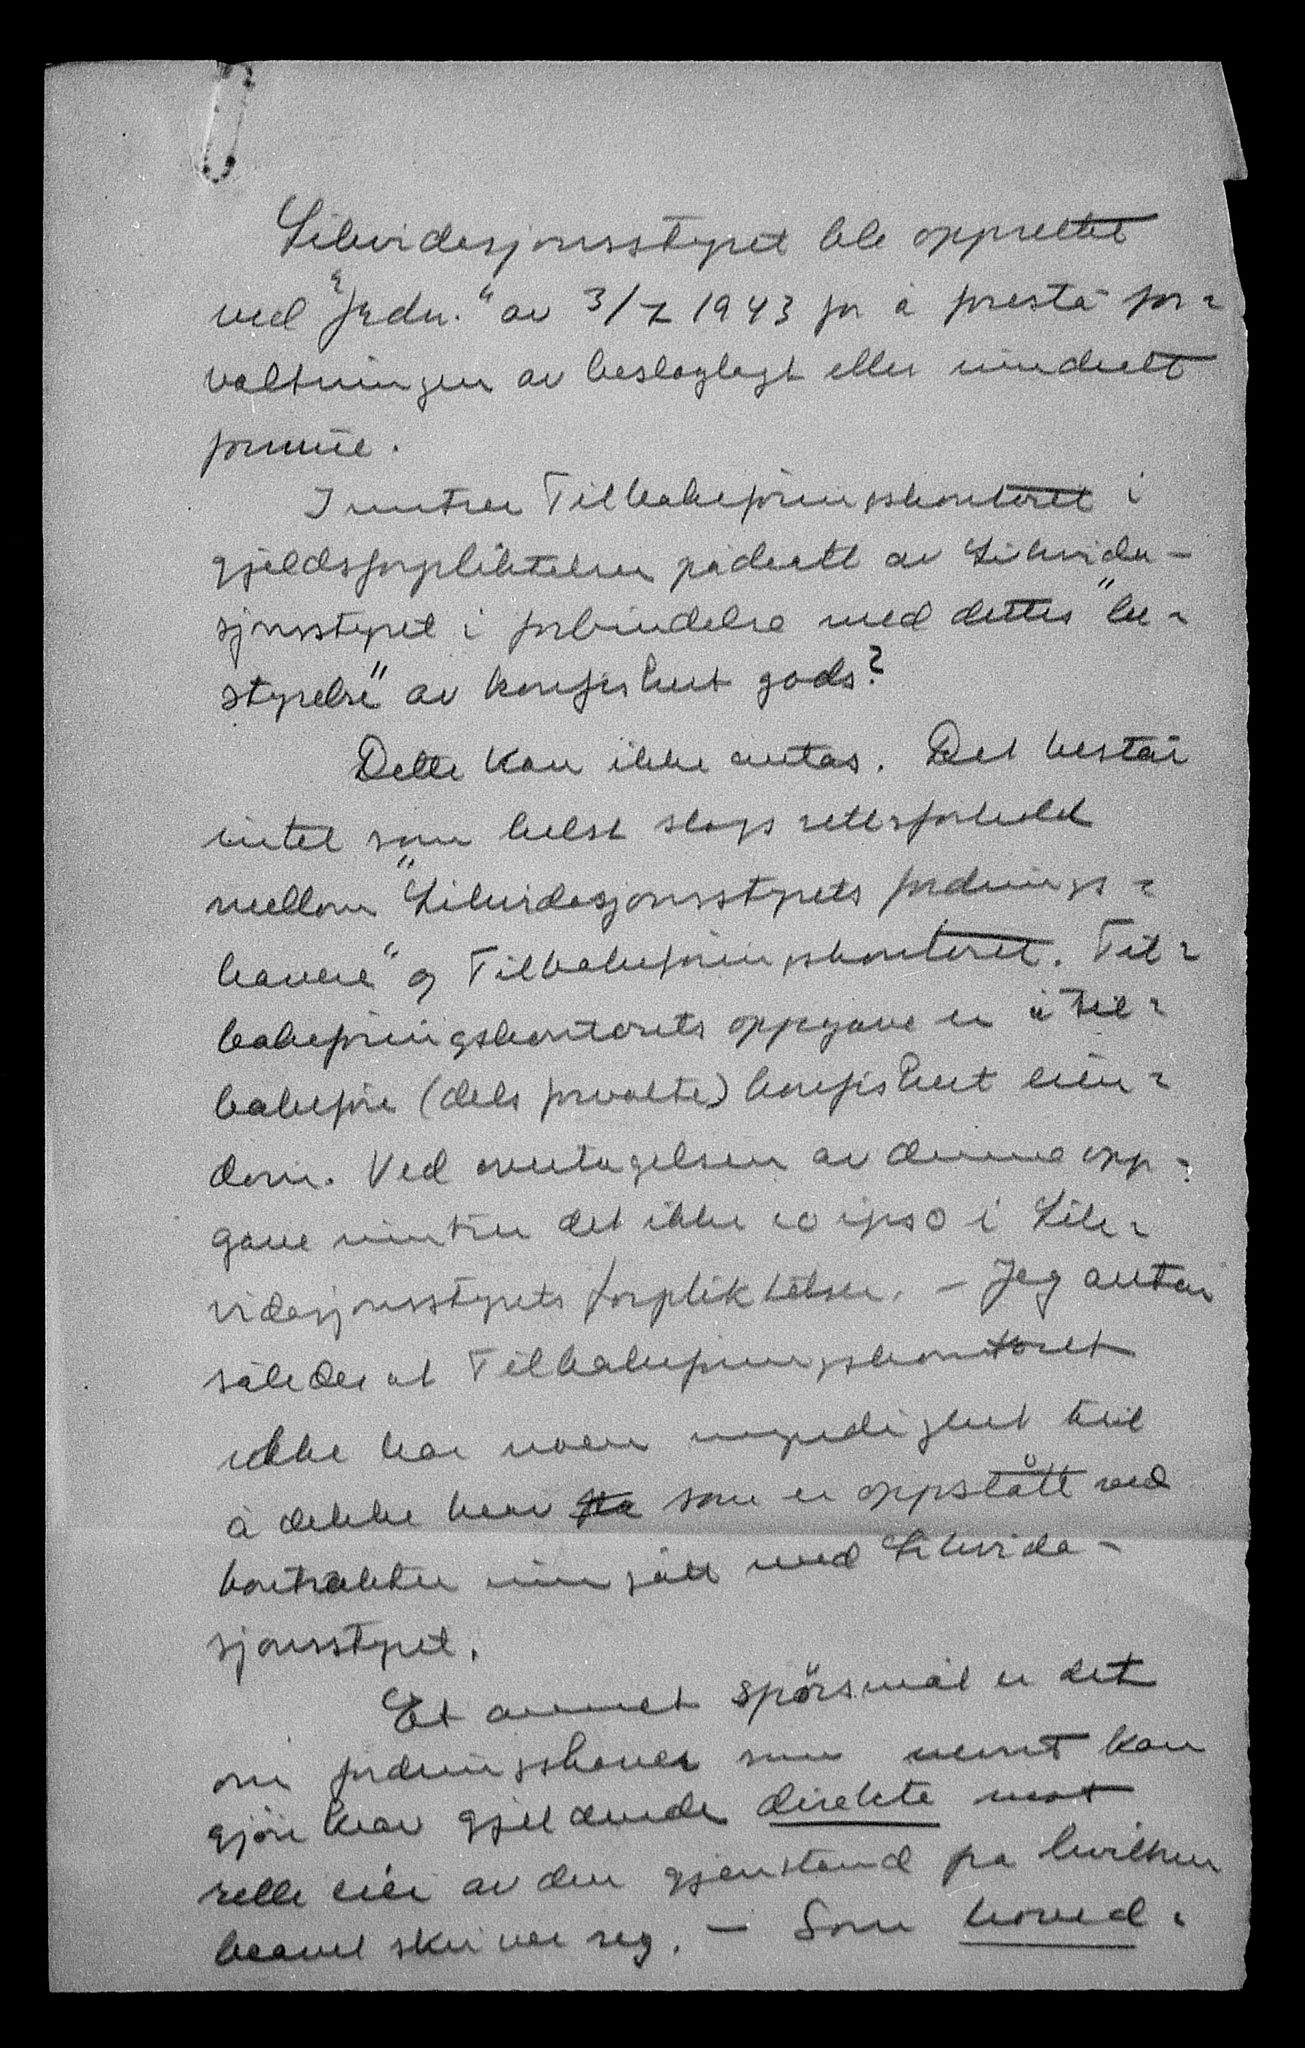 Likvidasjonsstyret ble opprettet
ved "Frdn." av 3/7 1943 for å forestå for=
valtningen av beslaglagt eller inndradt
formue.
Inntrer Tilbakeföringskontoret i
gjeldsforpliktelser pådratt av Likvida-
sjonsstyret i forbindelse med dettes "be=
styrelse" av konfiskert gods?
Dette kan ikke antas. Det består
intet som helst slags rettsforhold
mellom "Likvidasjonsstyrets fordrings=
havere" og Tilbakeföringskontoret. Til=
bakeföringskontorets oppgave er å til=
bakeföre (dels forvalte) konfiskert eien=
dom. Ved overtagelsen av denne opp=
gave inntrer det ikke eo ipso i Lik=
vidasjonsstyrets forpliktelser. - Jeg antar
således at Tilbakeföringskontoret
ikke har noen myndighet til
å dekke krav som er oppstått ved
kontrakter inngått med Likvida-
sjonsstyret.
Et annet spörsmål er det
om fordringshaver som nevnt kan
gjöre krav gjeldende direkte mot
rette eier av den gjenstand fra hvilken
kravet skriver seg. - Som hoved=